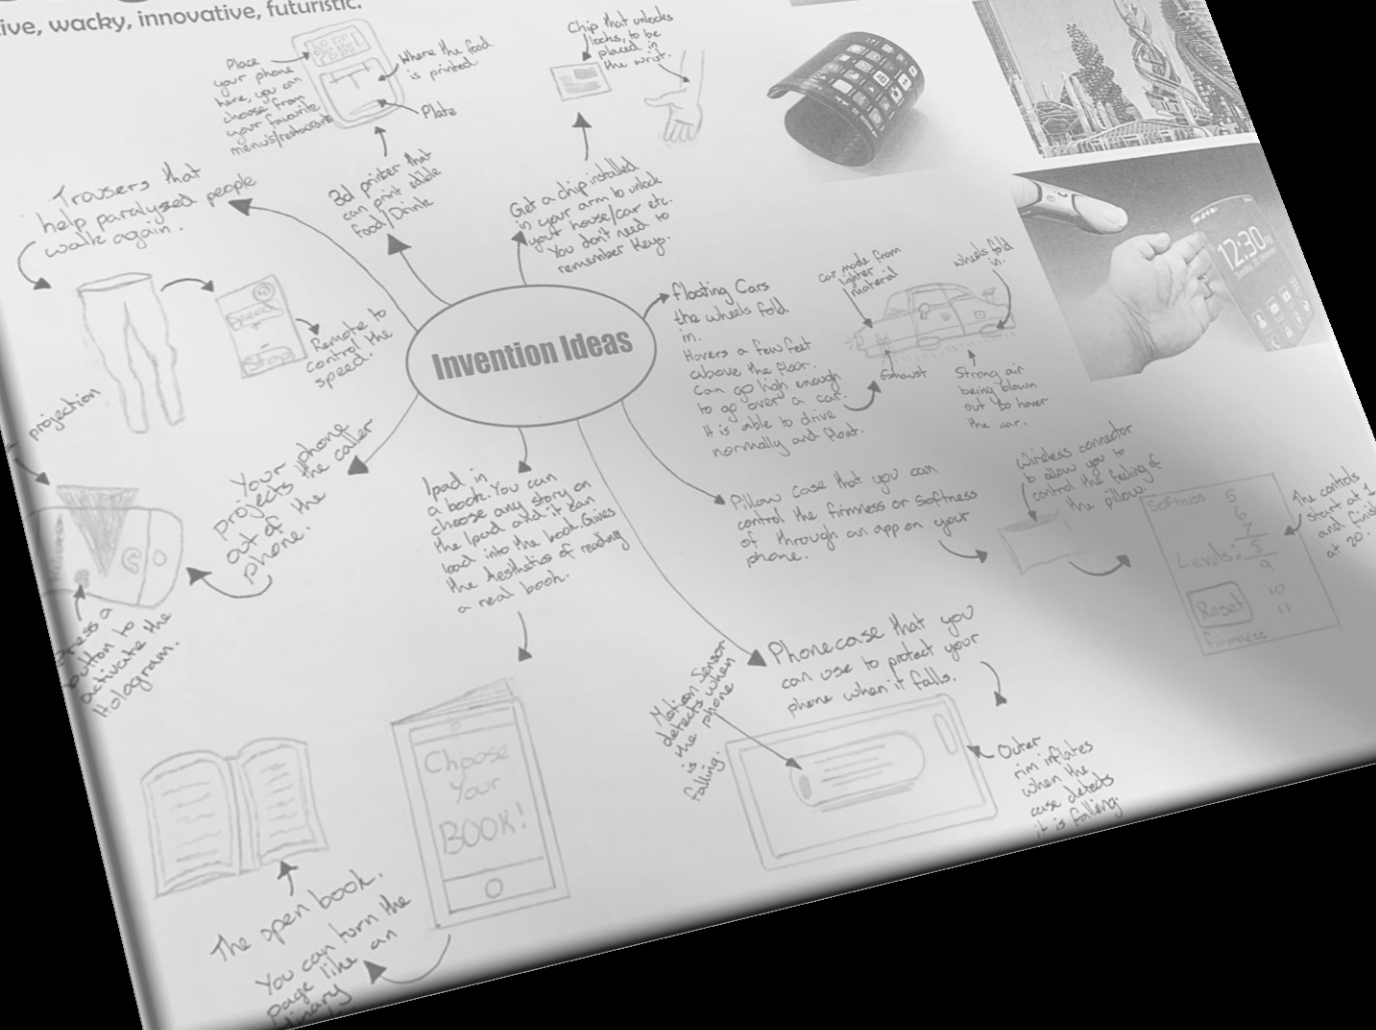 ive, wacky, innovative, futuristic.
Place
your phone
here, you can
choose from
your favourite
menus/restaurants
Where the food
is printed.
Plate
3d printer that
can print edible
food/Drink
Chip that unlocks
locks, to be
placed in
the wrist.
Get a chip installed
in your arm to unlock
your house/car etc.
You don't need to
remember Keys.
Trousers that
help paralysed people
walk again.
Speed
+
-
Stop
Remote to
control the
speed.
Invention Ideas
Floating Cars
the wheels fold
in.
Hovers a few feet
above the floor.
Can go high enough
to go over a car.
It is able to drive
normally and float.
car made from
lighter
material
wheels fold
in.
Exhaust
Strong air
being blown
out to hover
the car.
12:30
projection
Your phone
projects the caller
out of the
phone.
Press a
button to
activate the
Hologram.
Ipad in
a book. You can
choose any story on
the Ipad and it can
load into the book. Gives
the Aesthetics of reading
a real book.
Pillow case that you can
control the firmness or softness
of through an app on your
phone.
Wireless connector
to allow you to
control the feeling of
the pillow.
Softness
5
6
7
Levels:
9
10
11
Reset
Firmness
The controls
start at 1
and finish
at 20.
Phone case that you
can use to protect your
phone when it falls.
Motion Sensor
detects when
the phone
is
falling.
Outer
rim inflates
when the
case detects
it is falling.
Choose
Your
BOOK!
The open book.
You can turn the
page like an